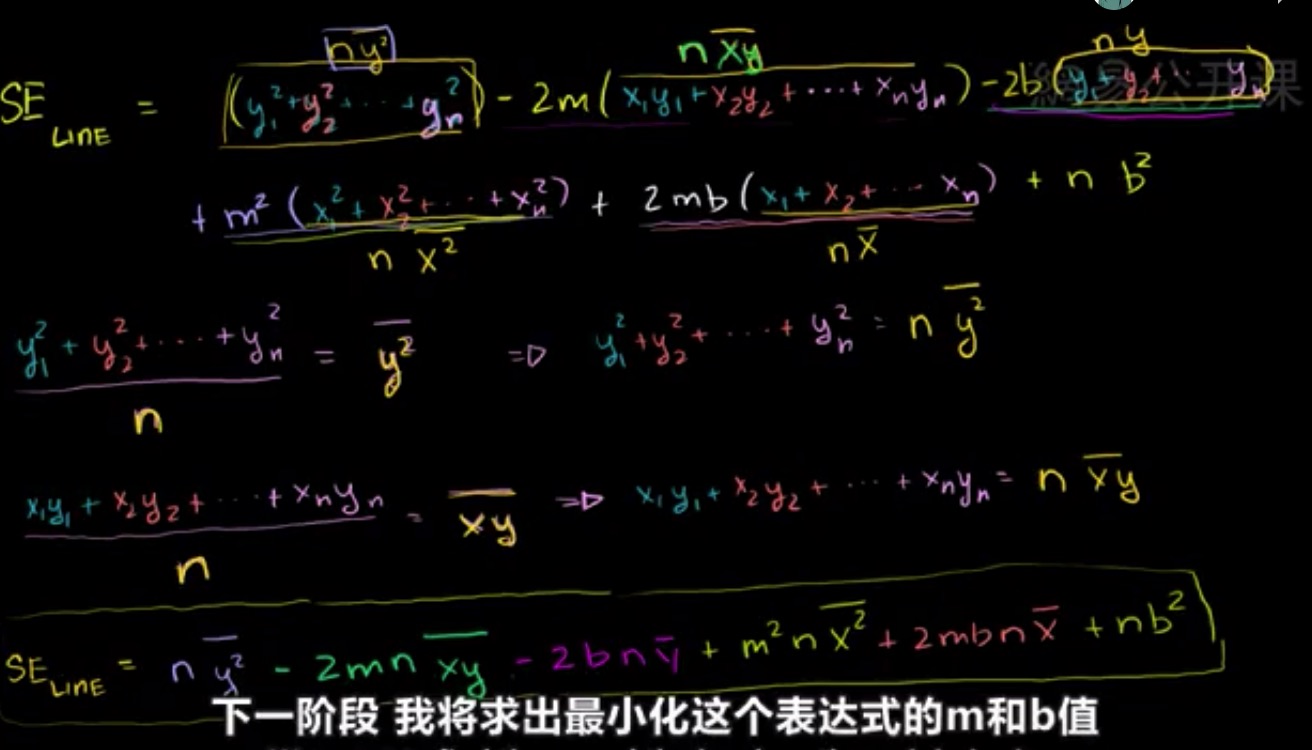 n\overline{y^2} n\overline{xy} n y
SE_{LINE} = (y_1^2 + y_2^2 + ··· + y_n^2) - 2m(x_1y_1 + x_2y_2 + ··· + x_ny_n) - 2b(y_1 + y_2 + ··· y_n)
網易公开课
+ m^2(x_1^2 + x_2^2 + ··· + x_n^2) + 2mb(x_1 + x_2 + ··· x_n) + n b^2
n \overline{x^2} n\overline{x}
\frac{y_1^2 + y_2^2 + ··· + y_n^2}{n} = \overline{y^2} ⇒ y_1^2 + y_2^2 + ··· + y_n^2 = n \overline{y^2}
\frac{x_1y_1 + x_2y_2 + ··· + x_ny_n}{n} = \overline{xy} ⇒ x_1y_1 + x_2y_2 + ··· + x_ny_n = n \overline{xy}
SE_{LINE} = n\overline{y^2} - 2mn\overline{xy} - 2bn\overline{y} + m^2n\overline{x^2} + 2mbn\overline{x} + nb^2
下一阶段 我将求出最小化这个表达式的m和b值